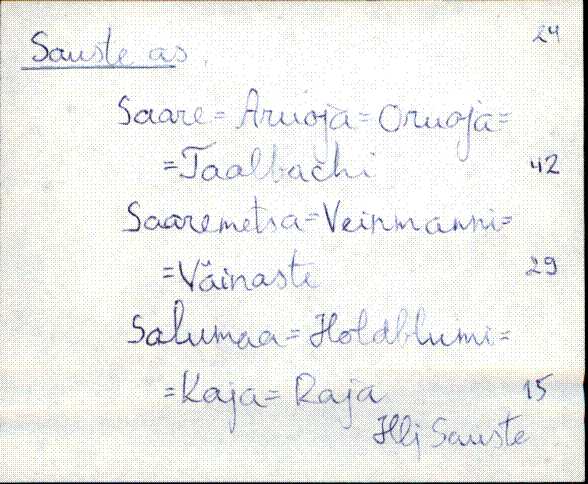 24
Sauste as.
Saare = Aruoja = Oruoja =
= Taalbachi 42
Saaremetsa = Veinmanni =
= Väinaste 29
Salumaa = Holdblumi =
= Kaja = Raja 15
Hlj Sauste